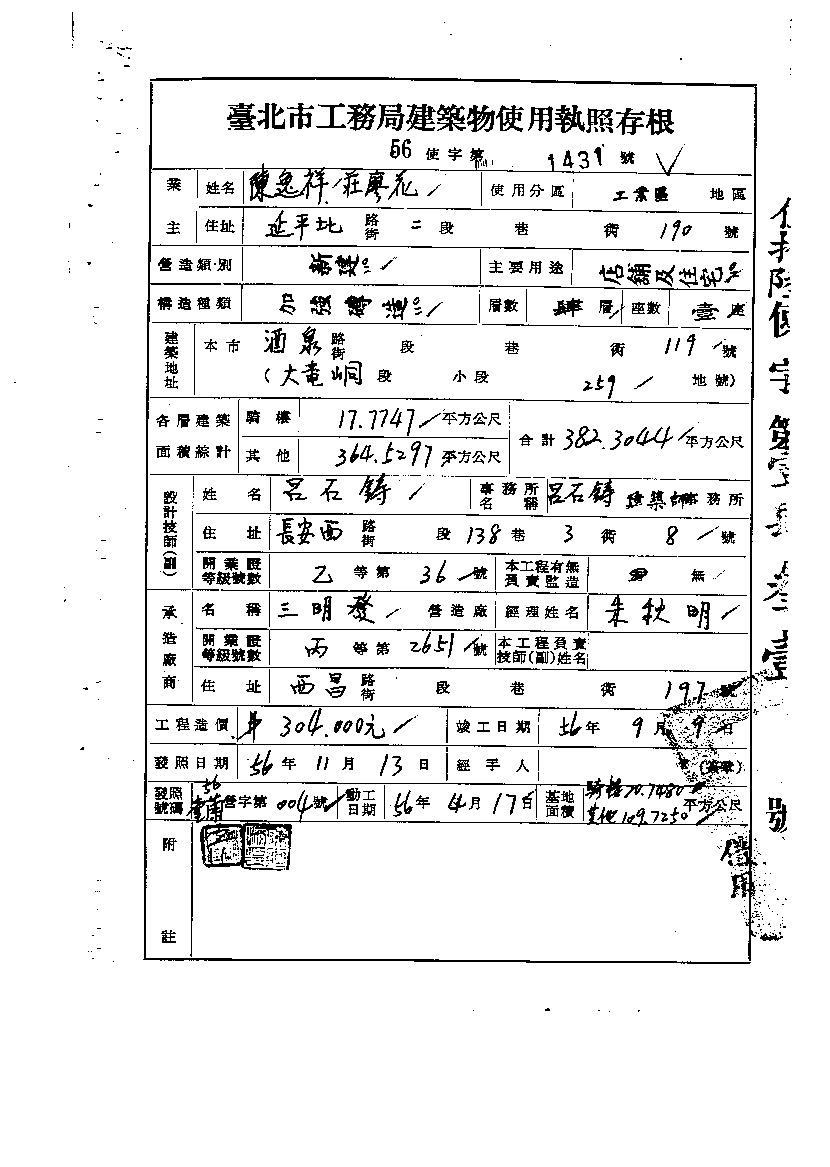 臺北市工務局建築物使用執照存根
56 使字第 1431 號
業主 姓名 陳逸祥 莊廖花 使用分區 工業區 地區
住址 延平北 路街 二 段 巷 街 190 號
營造類別 新建 主要用途 店舖及住宅
構造種類 加強磚造 層數 肆 層 座數 壹 座
建築地址 本市 酒泉 路街 段 巷 街 119 號
(大竜峒 段 小段 259 地號)
各層建築面積綜計 騎樓 17.7747 平方公尺 合計 382.3044 平方公尺
其他 364.5297 平方公尺
設計技師(副) 姓名 呂石鑄 事務所名稱 呂石鑄 建築師事務所
住址 長安西 路街 段 138 巷 3 街 8 號
開業證等級號數 乙 等第 36 號 本工程有無負責監造 無
承造廠商 名稱 三明發 營造廠 經理姓名 朱秋明
開業證等級號數 丙 等第 2651 號 本工程負責技師(副)姓名
住址 西昌 路街 段 巷 街 197 號
工程造價 304.000元 竣工日期 56 年 9 月 9 日
發照日期 56 年 11 月 13 日 經手人 (蓋章)
發照號碼 56 營字第 004 號 動工日期 56 年 4 月 17 日 基地面積 騎樓 其他 109.7250 平方公尺
附註
使用
號